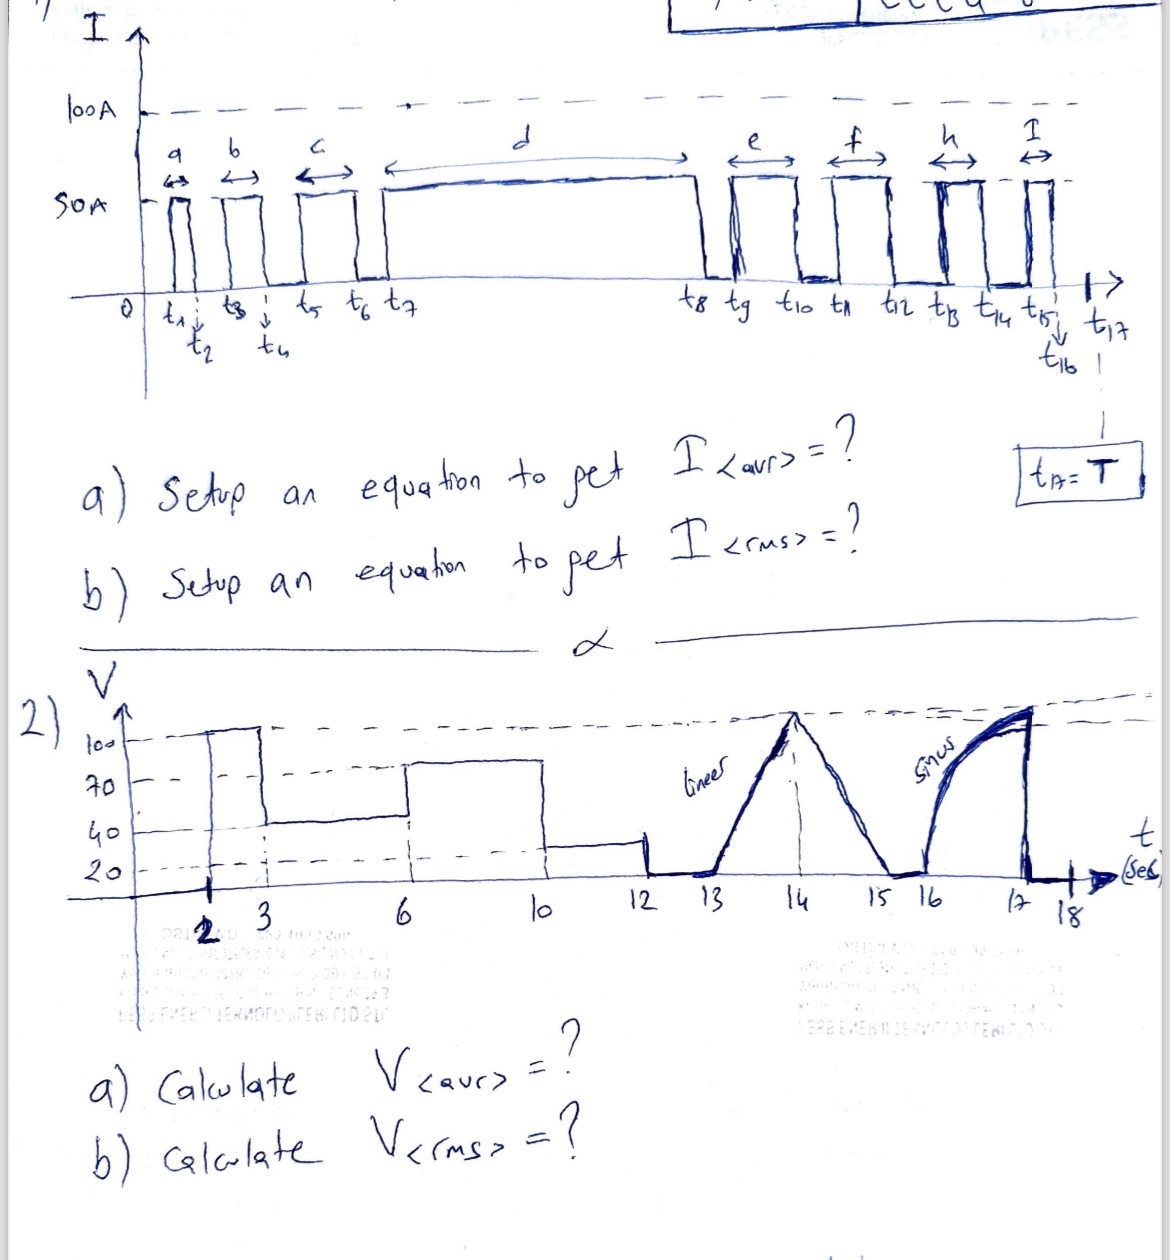 I
100A
a b c d e f h I
50A
0 t1 t3 t5 t6 t7 t8 t9 t10 t11 t12 t13 t14 t15 t17
t2 t4 t16
a) Setup an equation to get I<avr> = ?
t17= T
b) Setup an equation to get I<rms> = ?
α
2) V
100
70
40
20
lineer
sinus
t
(sec)
2 3 6 10 12 13 14 15 16 17 18
a) Calculate V<avr> = ?
b) Calculate V<rms> = ?